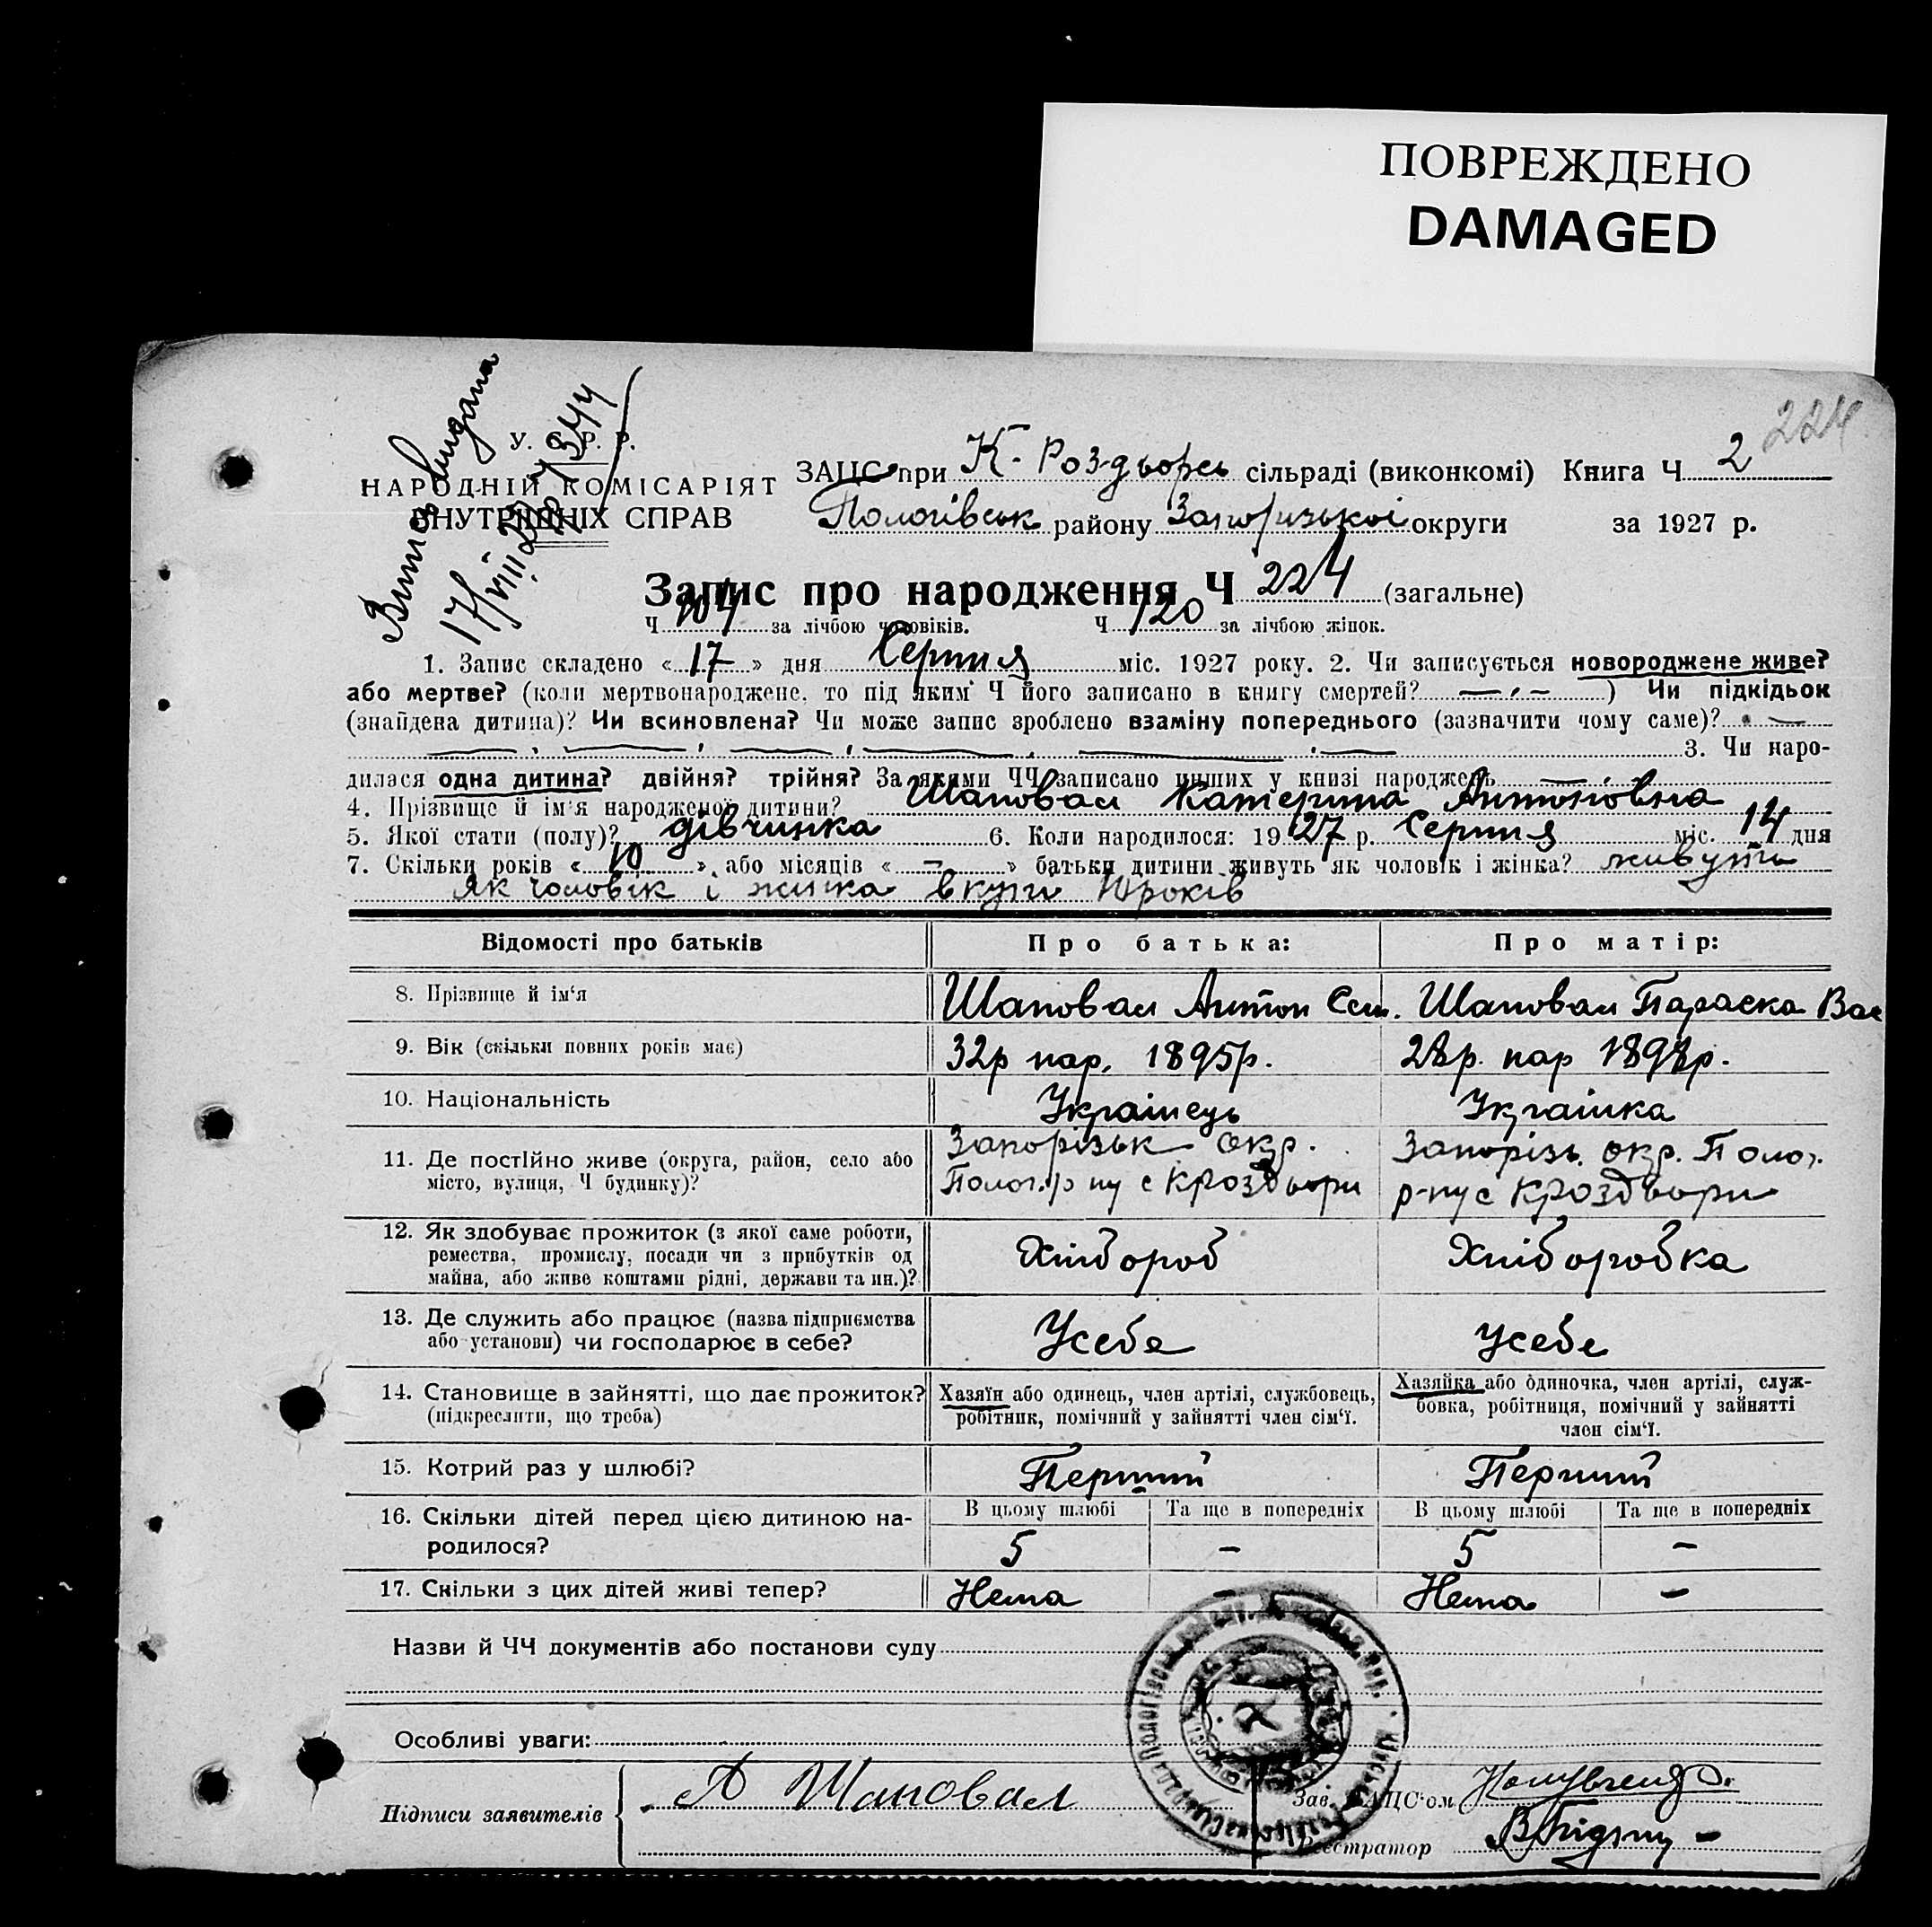 ПОВРЕЖДЕНО
DAMAGED
224
Витяг видана
17/VIII 27
У. С. Р. Р.
НАРОДНІЙ КОМІСАРІЯТ
ВНУТРІШНІХ СПРАВ
ЗАЦС при К-Роздорсь сільраді (виконкомі) Книга Ч 2
Пологівськ району Запорізької округи за 1927 р.
Запис про народження Ч 224 (загальне)
Ч 104 за лічбою чоловіків. Ч 120 за лічбою жінок.
1. Запис складено « 17 » дня Серпня міс. 1927 року. 2. Чи записується новороджене живе?
або мертве? (коли мертвонароджене, то під яким Ч його записано в книгу смертей? — ) Чи підкідьок
(знайдена дитина)? Чи всиновлена? Чи може запис зроблено взаміну попереднього (зазначити чому саме)? —
3. Чи наро-
дилася одна дитина? двійня? трійня? За якими ЧЧ записано инших у книзі народжень —
4. Прізвище й ім'я народженої дитини? Шаповал Катерина Антоновна
5. Якої стати (полу)? дівчинка 6. Коли народилося: 1927 р. Серпня міс. 14 дня
7. Скільки років « 10 » або місяців « — » батьки дитини живуть як чоловік і жінка? живуть
як чоловік і жинка вкупі 10 років
Відомості про батьків Про батька: Про матір:
8. Прізвище й ім'я Шаповал Антон Сем. Шаповал Параска Вас
9. Вік (скільки повних років має) 32р нар. 1895р. 28р. нар 1898р.
10. Національність Українець Українка
11. Де постійно живе (округа, район, село або місто, вулиця, Ч будинку)?
Запорізьк окр. Полог. р-ну с Кроздори
Запорізь. окр. Полог. р-ну с Кроздори
12. Як здобуває прожиток (з якої саме роботи,
ремества, промислу, посади чи з прибутків од
майна, або живе коштами рідні, держави та ин.)?
Хлібороб Хліборобка
13. Де служить або працює (назва підприємства
або установи) чи господарює в себе?
Усебе Усебе
14. Становище в зайнятті, що дає прожиток?
(підкреслити, що треба)
Хазяїн або одинець, член артілі, службовець,
робітник, помічний у зайнятті член сім'ї.
Хазяйка або одиночка, член артілі, служ-
бовка, робітниця, помічний у зайнятті
член сім'ї.
15. Котрий раз у шлюбі? Перший Перший
16. Скільки дітей перед цією дитиною на-
родилося?
В цьому шлюбі Та ще в попередніх В цьому шлюбі Та ще в попередніх
5 — 5 —
17. Скільки з цих дітей живі тепер? Нема — Нема —
Назви й ЧЧ документів або постанови суду
Особливі уваги:
Підписи заявителів А Шаповал
Зав. ЗАЦС'ом
Реєстратор